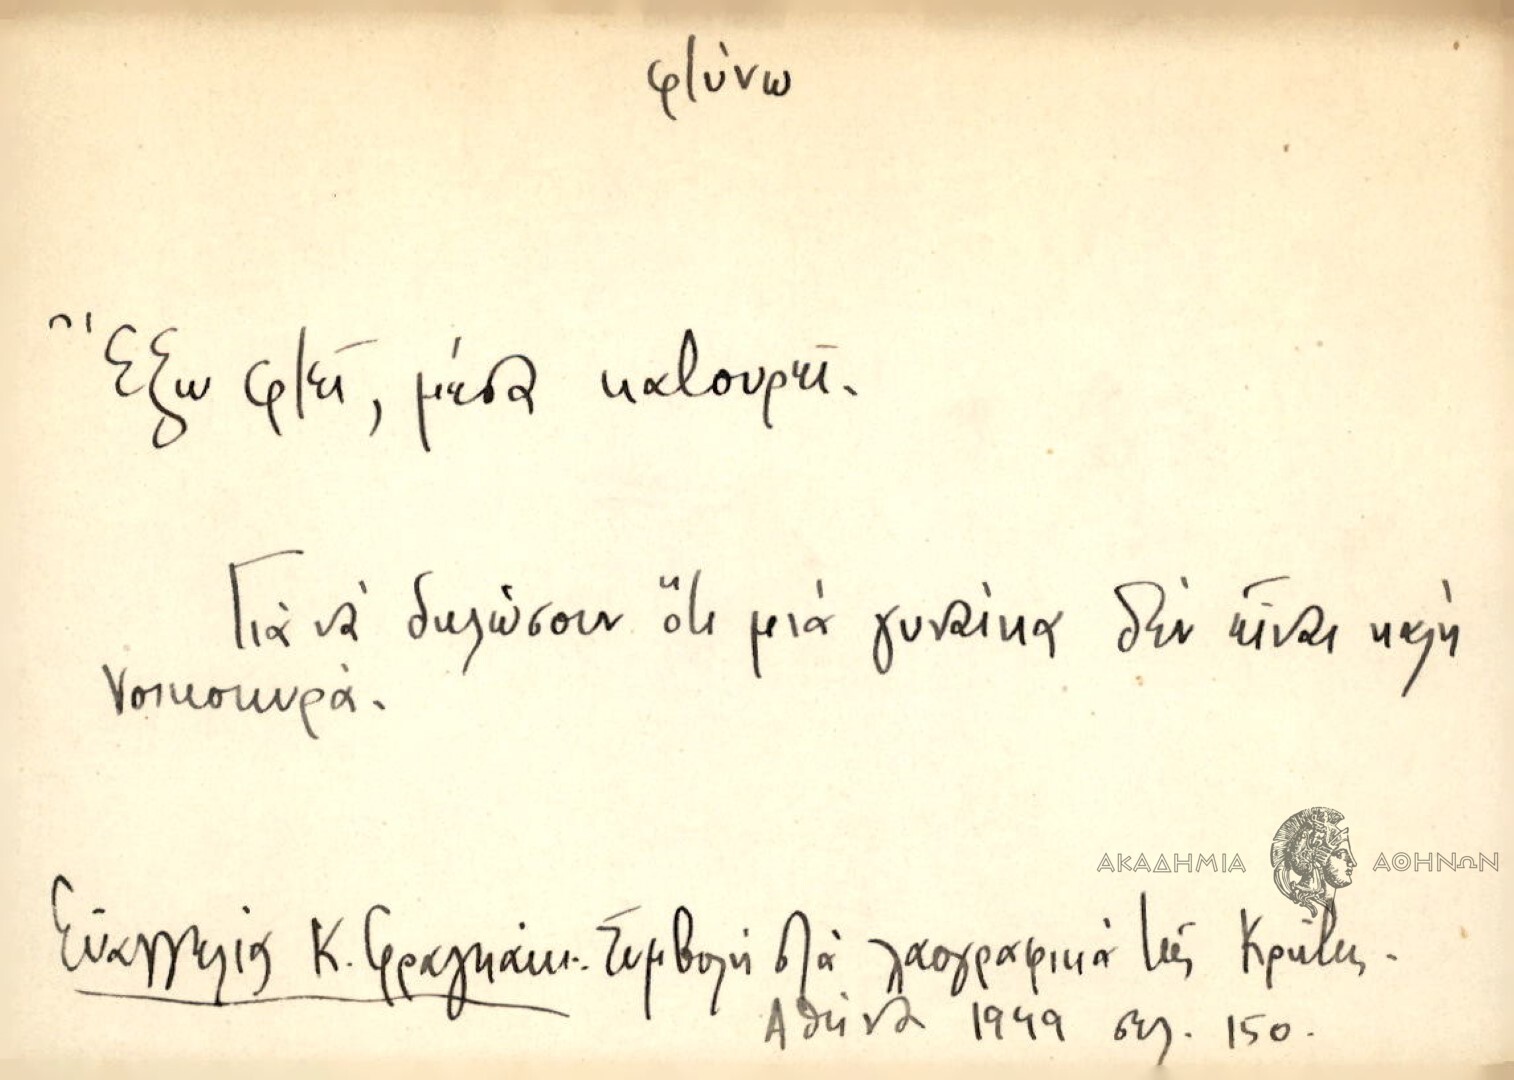 φτύνω
Ἔξω φτεῖ, μέσα κατουρεῖ.
Γιὰ νὰ δηλώσουν ὅτι μιὰ γυναίκα δὲν εἶναι καλὴ
νοικοκυρά.
Εὐαγγελίας Κ. Φραγκάκι. Συμβολὴ στὰ λαογραφικὰ τῆς Κρήτης.
Ἀθήνα 1949 σελ. 150.
ΑΚΑΔΗΜΙΑ ΑΘΗΝΩΝ